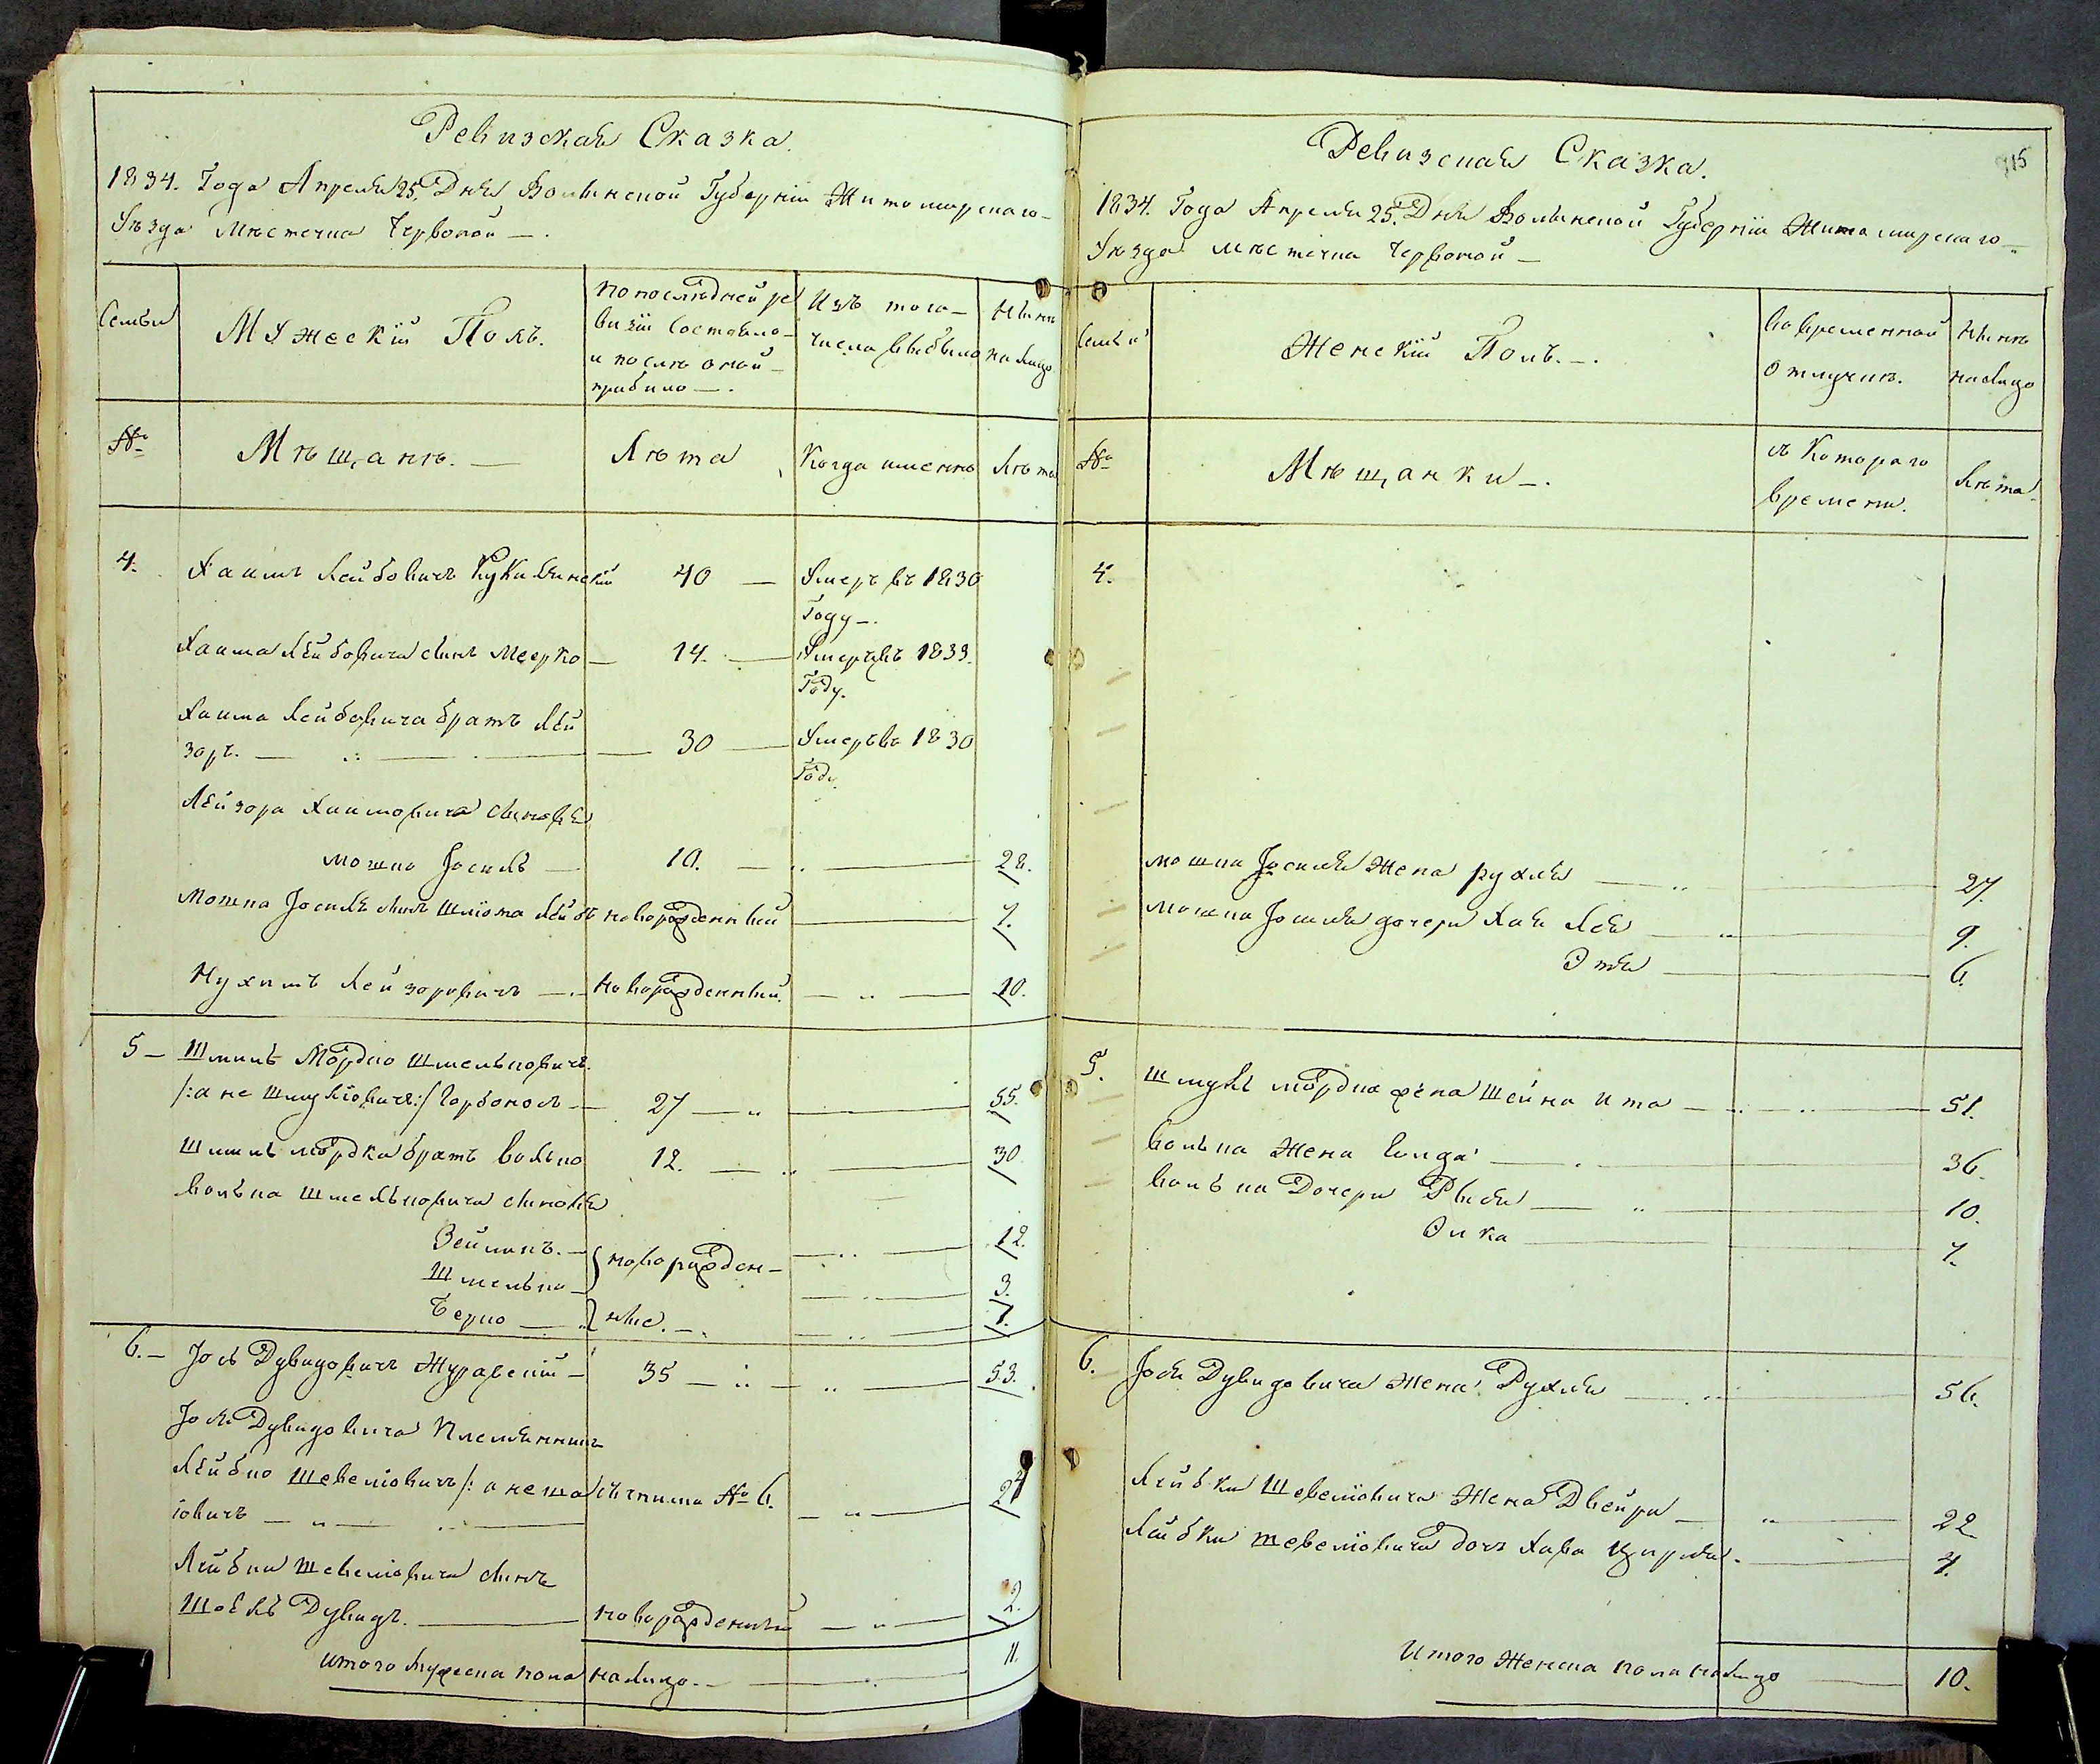 Ревизская Сказка.
1834. Года Апреля 25. Дня Волынской Губерніи Житомирскаго
Уѣзда Мѣстечка Червоной
Семьи
Мужескій Полъ.
по последней ре
визіи состояло
и послѣ оной
прибыло
Изъ того
числа выбыло
Нынѣ
на лицо
№
Мѣщанѣ.
Лѣта
Когда именно
Лѣта
4.
Хаимъ Лейбовичъ
40
Умеръ въ 1830
Году
Хаима Лейбовича сынъ Меерко
14.
Умеръ въ 1833.
Году.
Хаима Лейбовича братъ Лей
зоръ.
30
Умеръ въ 1830
Году.
Лейзора Хаимовича сыновья
Мошко Іосиль
10.
28.
Мошка Іосиля сынъ Шліома Лейбъ новорожденный
7.
Нухимъ Лейзоровичъ
новорожденный.
10.
5
Шмиль Мордко Шмельковичъ.
/:а не Шмулiовичъ:/
27
55.
Шмиль Мордки братъ Волько
12.
30
Волька Шмельковича сыновья
Зейликъ.
новорожден-
12.
Шмелько
3.
Берко
ные.
1.
6.
Іось Дувидовичъ Журавскій
35
53.
Іося Дувидовича Племянникъ
Лейбко Шевеліовичъ /: а не
іовичъ
№ 6.
Лейбки Шевеліовича сынъ
Дувидъ.
новорожденный
2.
Итого мужеска пола на лицо.
11.
Ревизская Сказка.
715
1834. Года Апреля 25. Дня Волынской Губерніи Житомирскаго
Уѣзда мѣстечка Червоной
Семьи
Женскій Полъ.
Во временной
отлучкѣ.
Нынѣ
на лицо
№
Мѣщанки.
съ Котораго
времени.
Лѣта
4.
Мошка Іосиля Жена Рухля
27.
Мошка Іосиля дочери Хая Лея
9.
Этя
6.
5.
Шмуля Мордка жена Шейна Ита
51.
Волька Жена
36
Волька Дочери Рыся
10.
7.
6.
Іося Дувидовича Жена Рухля
56.
Лейбки Шевеліовича Жена Двейра
22
Лейбки Шевеліовича дочь Хава
4.
Итого Женска пола на лицо
10.